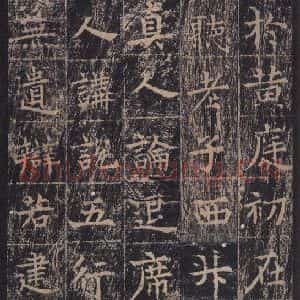 於黄庭初在
聽老子西升
真人論席
人講說五行
無遺若建